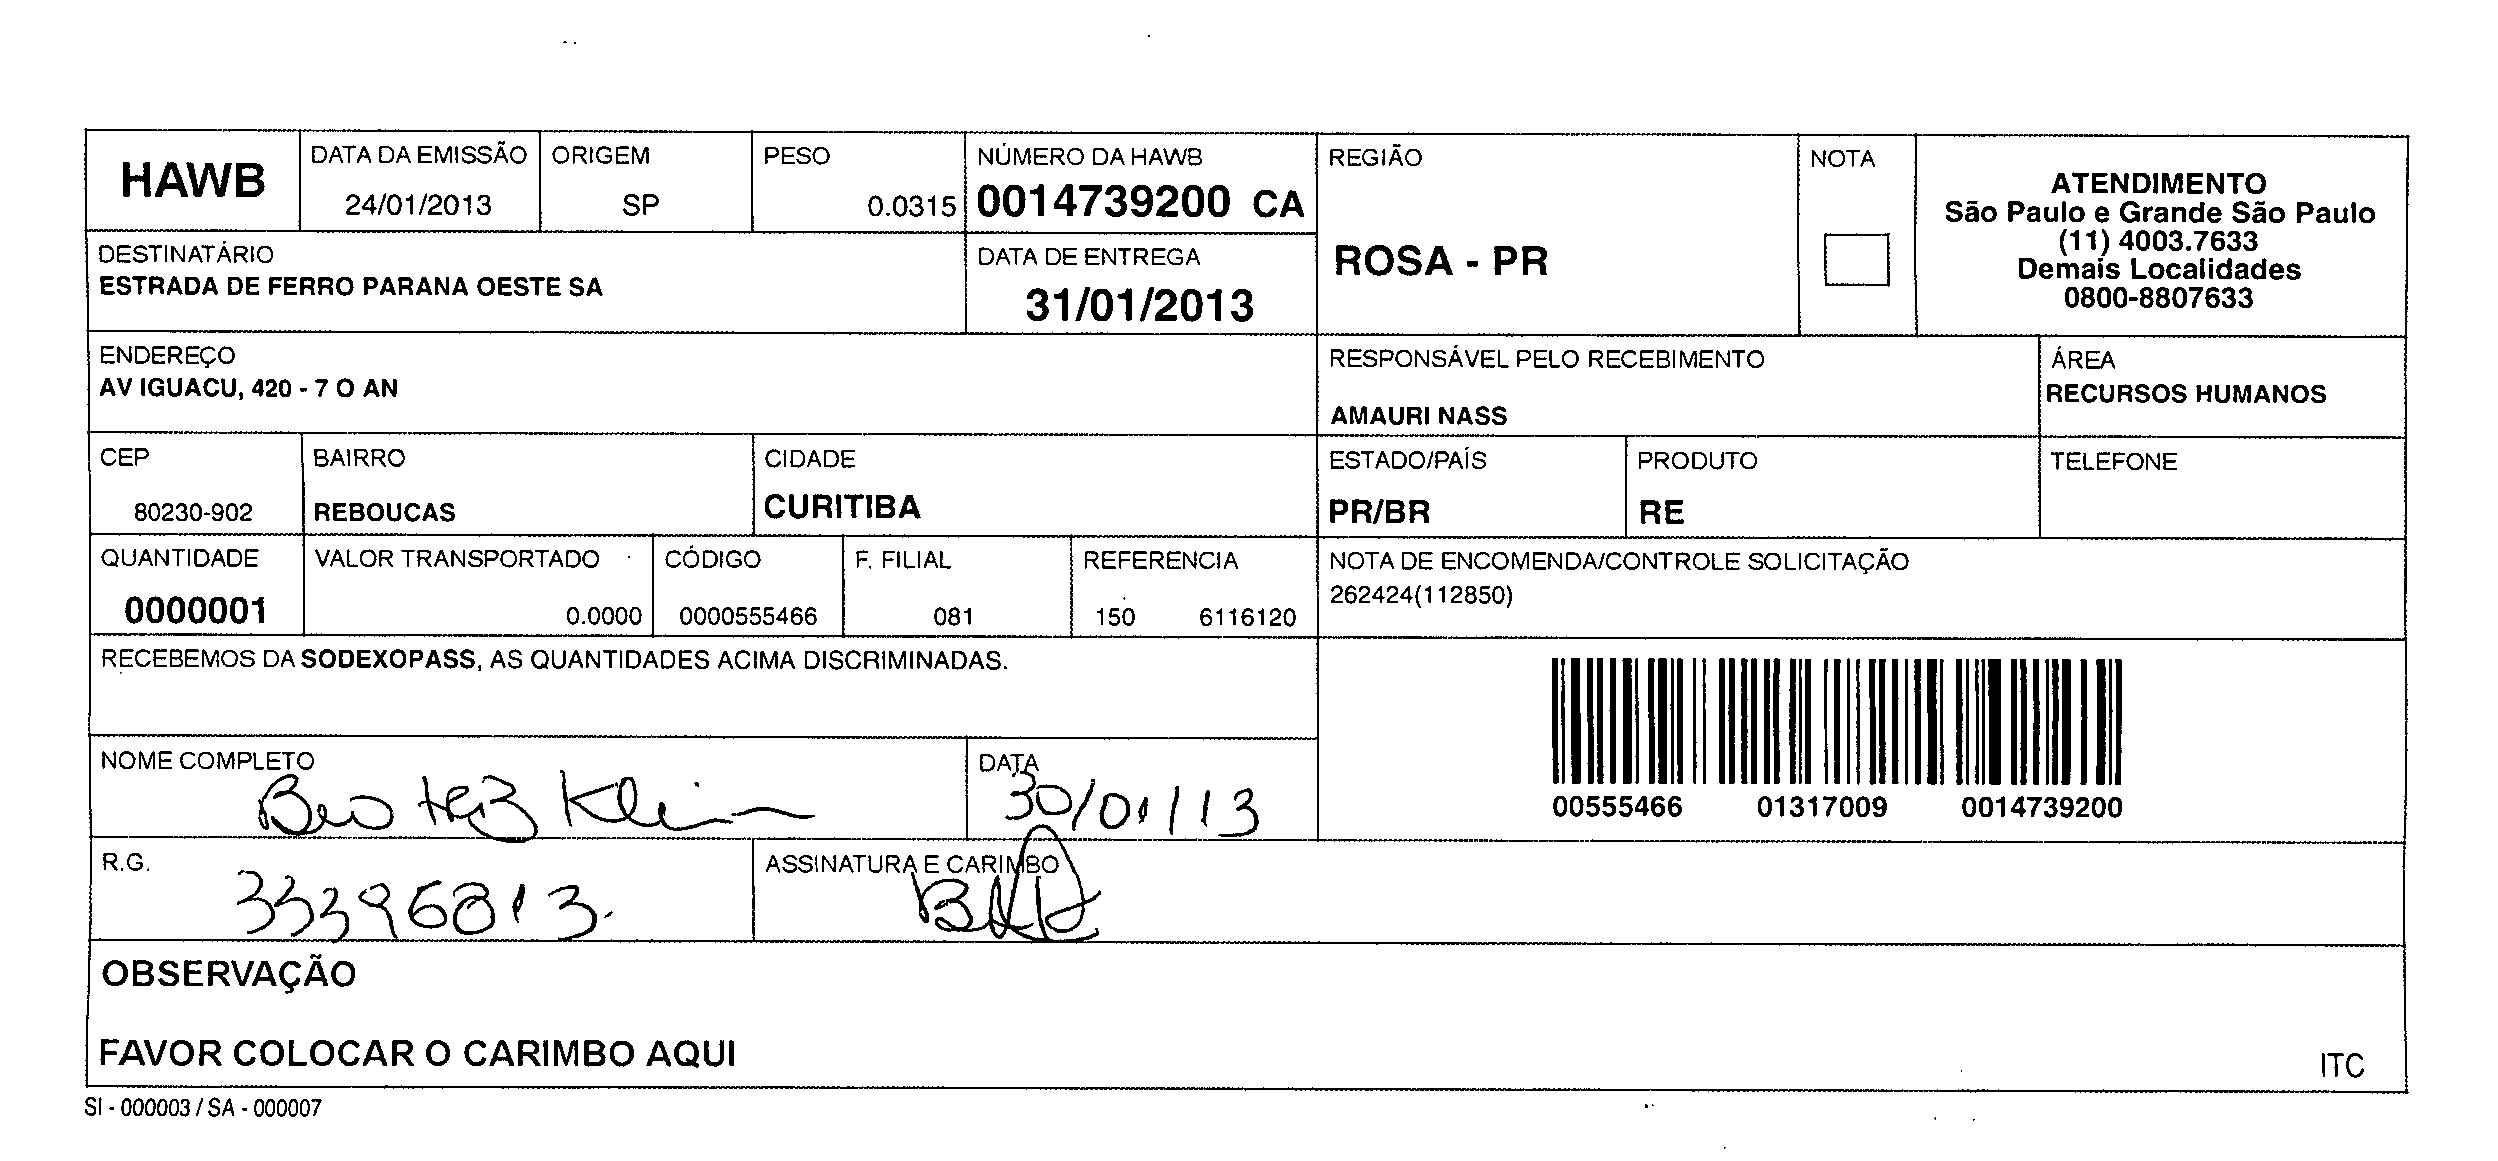 HAWB
DATA DA EMISSÃO
24/01/2013
ORIGEM
SP
PESO
0.0315
NÚMERO DA HAWB
0014739200 CA
REGIÃO
ROSA - PR
NOTA
ATENDIMENTO
São Paulo e Grande São Paulo
(11) 4003.7633
Demais Localidades
0800-8807633
DESTINATÁRIO
ESTRADA DE FERRO PARANA OESTE SA
DATA DE ENTREGA
31/01/2013
ENDEREÇO
AV IGUACU, 420 - 7 O AN
RESPONSÁVEL PELO RECEBIMENTO
AMAURI NASS
ÁREA
RECURSOS HUMANOS
CEP
80230-902
BAIRRO
REBOUCAS
CIDADE
CURITIBA
ESTADO/PAÍS
PR/BR
PRODUTO
RE
TELEFONE
QUANTIDADE
0000001
VALOR TRANSPORTADO
0.0000
CÓDIGO
0000555466
F. FILIAL
081
REFERENCIA
150 6116120
NOTA DE ENCOMENDA/CONTROLE SOLICITAÇÃO
262424(112850)
RECEBEMOS DA SODEXOPASS, AS QUANTIDADES ACIMA DISCRIMINADAS.
00555466 01317009 0014739200
NOME COMPLETO
Beatriz Klein
DATA
30/01/13
R.G.
33396813.
ASSINATURA E CARIMBO
OBSERVAÇÃO
FAVOR COLOCAR O CARIMBO AQUI
ITC
SI - 000003 / SA - 000007